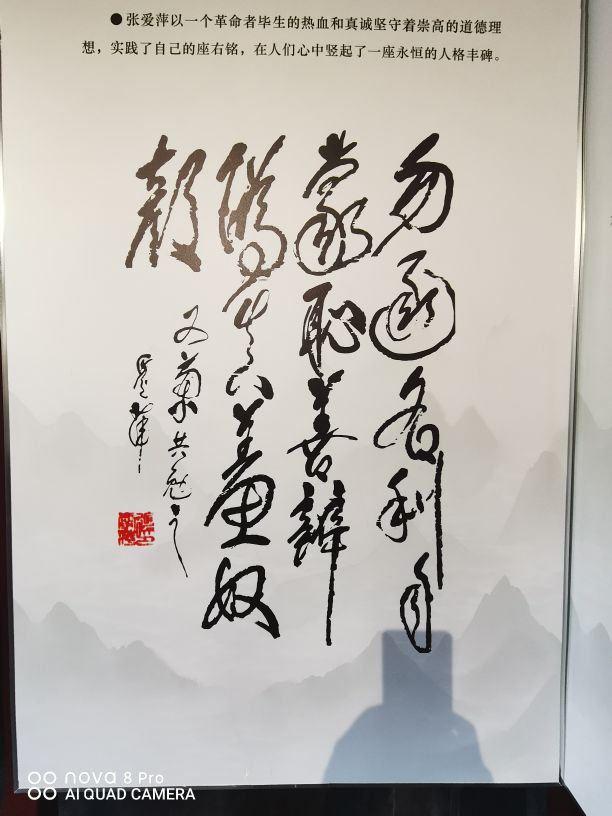 ●张爱萍以一个革命者毕生的热血和真诚坚守着崇高的道德理
想，实践了自己的座右铭，在人们心中竖起了一座永恒的人格丰碑。
勿逐名利自
蒙恥善辨
偽真羞奴
顏
又蘭共勉之
愛萍
nova 8 Pro
AI QUAD CAMERA